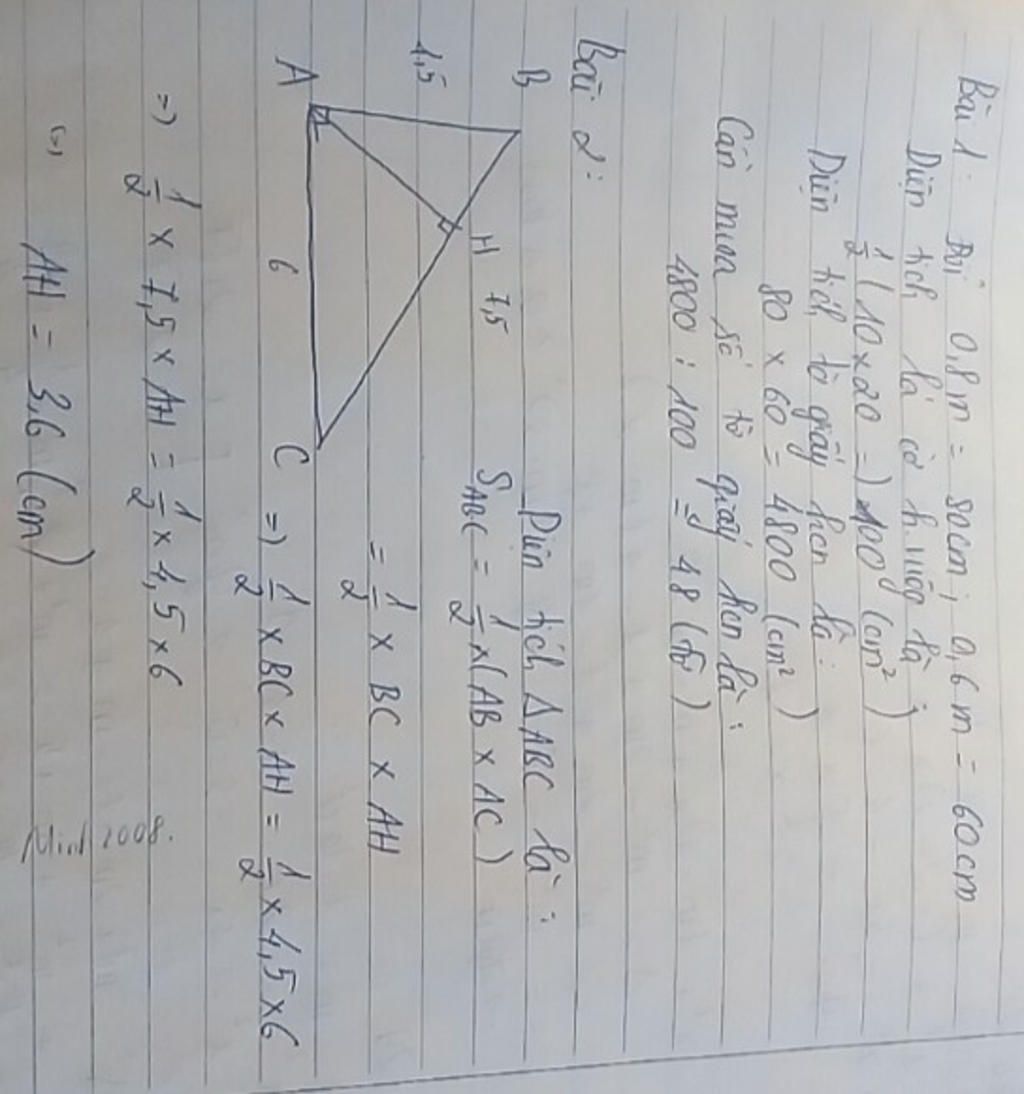 Bài 1: Đổi 0,8m = 80cm; 0,6m = 60cm
Diện tích lá cờ h.vuông là:
1/2 (10 x 20 = ) 100 (cm²)
Diện tích tờ giấy hcn là:
80 x 60 = 4800 (cm²)
Cần mua số tờ giấy hcn là:
4800 : 100 = 48 (tờ)
Bài 2:
B
H
4,5
7,5
A
6
C
Diện tích ΔABC là:
S ABC = 1/2 x (AB x AC)
= 1/2 x BC x AH
=) 1/2 x BC x AH = 1/2 x 4,5 x 6
=) 1/2 x 7,5 x AH = 1/2 x 4,5 x 6
(=) AH = 3,6 (cm)
2008.